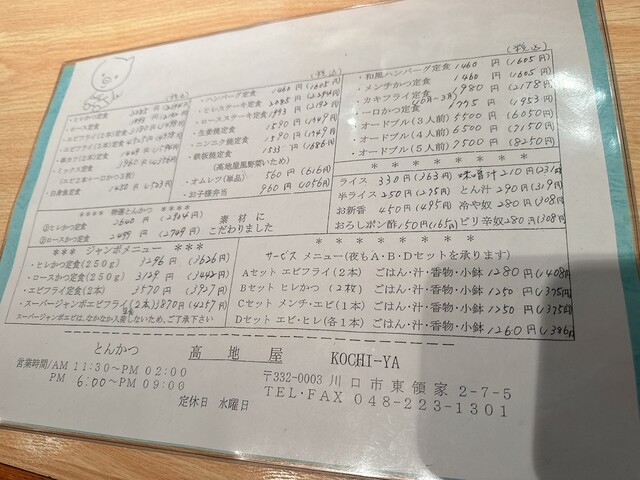 (税込)
・ヒレかつ定食
・ロース定食
・エビフライ(2本)定食
・ミックス定食
(エビ2本+一口かつ3枚)
(税込)
・ハンバーグ定食 1460円(1605円)
・ヒレステーキ定食 2085円(2294円)
・ロースステーキ定食 1993円(2192円)
・生姜焼定食
・ニンニク焼定食
・鉄板焼定食 1533円(1686円)
(高地屋風野菜いため)
・オムレツ(単品) 560円(616円)
・お子様弁当 960円(1056円)
(税込)
・和風ハンバーグ定食 1460円(1605円)
・メンチかつ定食 1460円(1605円)
・カキフライ定食(10月~3月) 1980円(2178円)
・一口かつ定食 1775円(1953円)
・オードブル(3人前) 5500円(6050円)
・オードブル(4人前) 6500円(7150円)
・オードブル(5人前) 7500円(8250円)
**** 特選とんかつ ****
①ヒレかつ定食 2640円(2904円)
②ロースかつ定食 2499円(2749円)
素材に
こだわりました
* * * * * * * * * *
ライス 330円(363円) 味噌汁 210円(231円)
半ライス 250円(275円) とん汁 290円(319円)
お新香 450円(495円) 冷や奴 280円(308円)
おろしポン酢 150円(165円) ピリ辛奴 280円(308円)
* * * * * * * * * *
*** ジャンボメニュー ***
・ヒレかつ定食(250g) 3296円(3626円)
・ロースかつ定食(250g) 3129円(3442円)
・エビフライ定食(2本) 3570円(3927円)
・スーパージャンボエビフライ(2本)3870円(4257円)
スーパージャンボエビは、なかなか入荷しないため、ご了承下さい
サービス メニュー(夜もA・B・Dセットを承ります)
Aセット エビフライ(2本) ごはん・汁・香物・小鉢 1280円(1408円)
Bセット ヒレかつ(2枚) ごはん・汁・香物・小鉢 1250円(1375円)
Cセット メンチ・エビ(1本) ごはん・汁・香物・小鉢 1250円(1375円)
Dセット エビ・ヒレ(各1本) ごはん・汁・香物・小鉢 1260円(1386円)
とんかつ 高地屋 KOCHI-YA
営業時間/AM 11:30~PM 02:00
PM 6:00~PM 09:00
定休日 水曜日
〒332-0003 川口市東領家2-7-5
TEL・FAX 048-223-1301